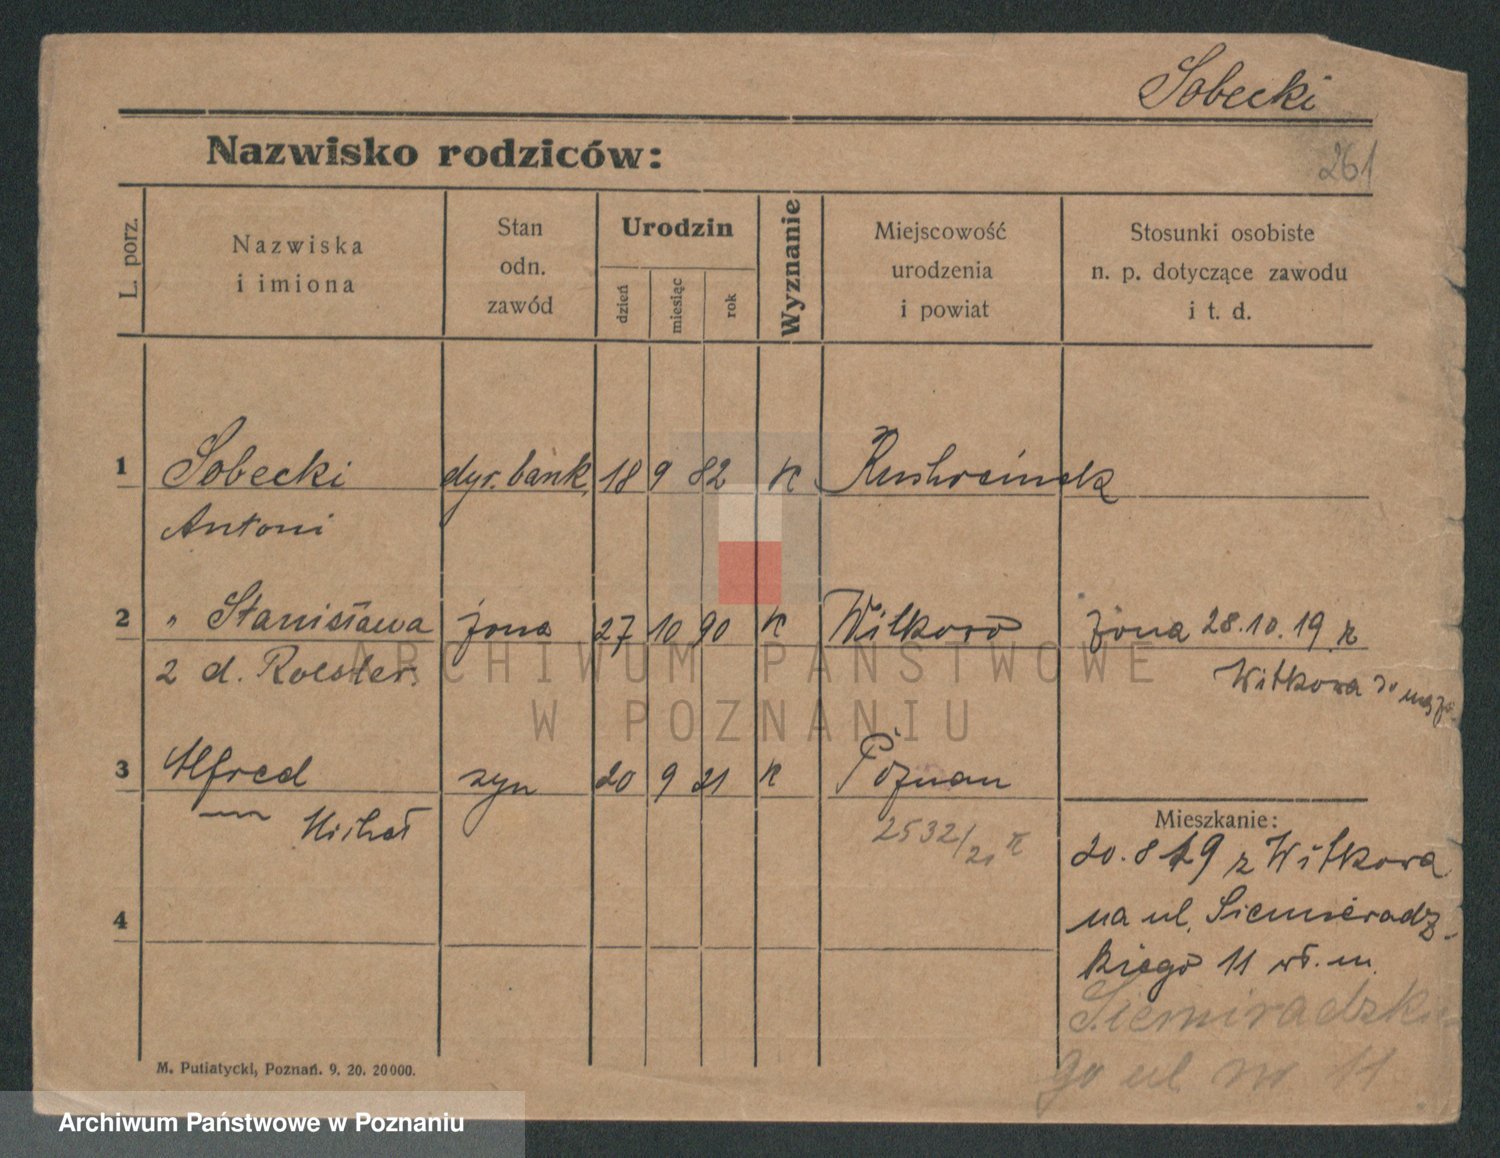 Sobecki
Nazwisko rodziców:
261
L. porz.
Nazwiska
i imiona
Stan
odn.
zawód
Urodzin
dzień
miesiąc
rok
Wyznanie
Miejscowość
urodzenia
i powiat
Stosunki osobiste
n. p. dotyczące zawodu
i t. d.
1 Sobecki dyr. bank. 18 9 82 K
Antoni
2 " Stanisława żona 27 10 90 K Witkowo żona 28.10.19. z
2 d. Roester. Witkowa do męża
3 Alfred syn 20 9 21 K Poznan
Michał
2532/21 K
Mieszkanie:
20.8.19 z Witkowa
na ul. Siemieradz-
kiego 11 wł. m.
4
Siemiradzkie-
go ul nr 11
M. Putiatycki, Poznań. 9. 20. 20000.
ARCHIWUM PAŃSTWOWE
W POZNANIU
Archiwum Państwowe w Poznaniu